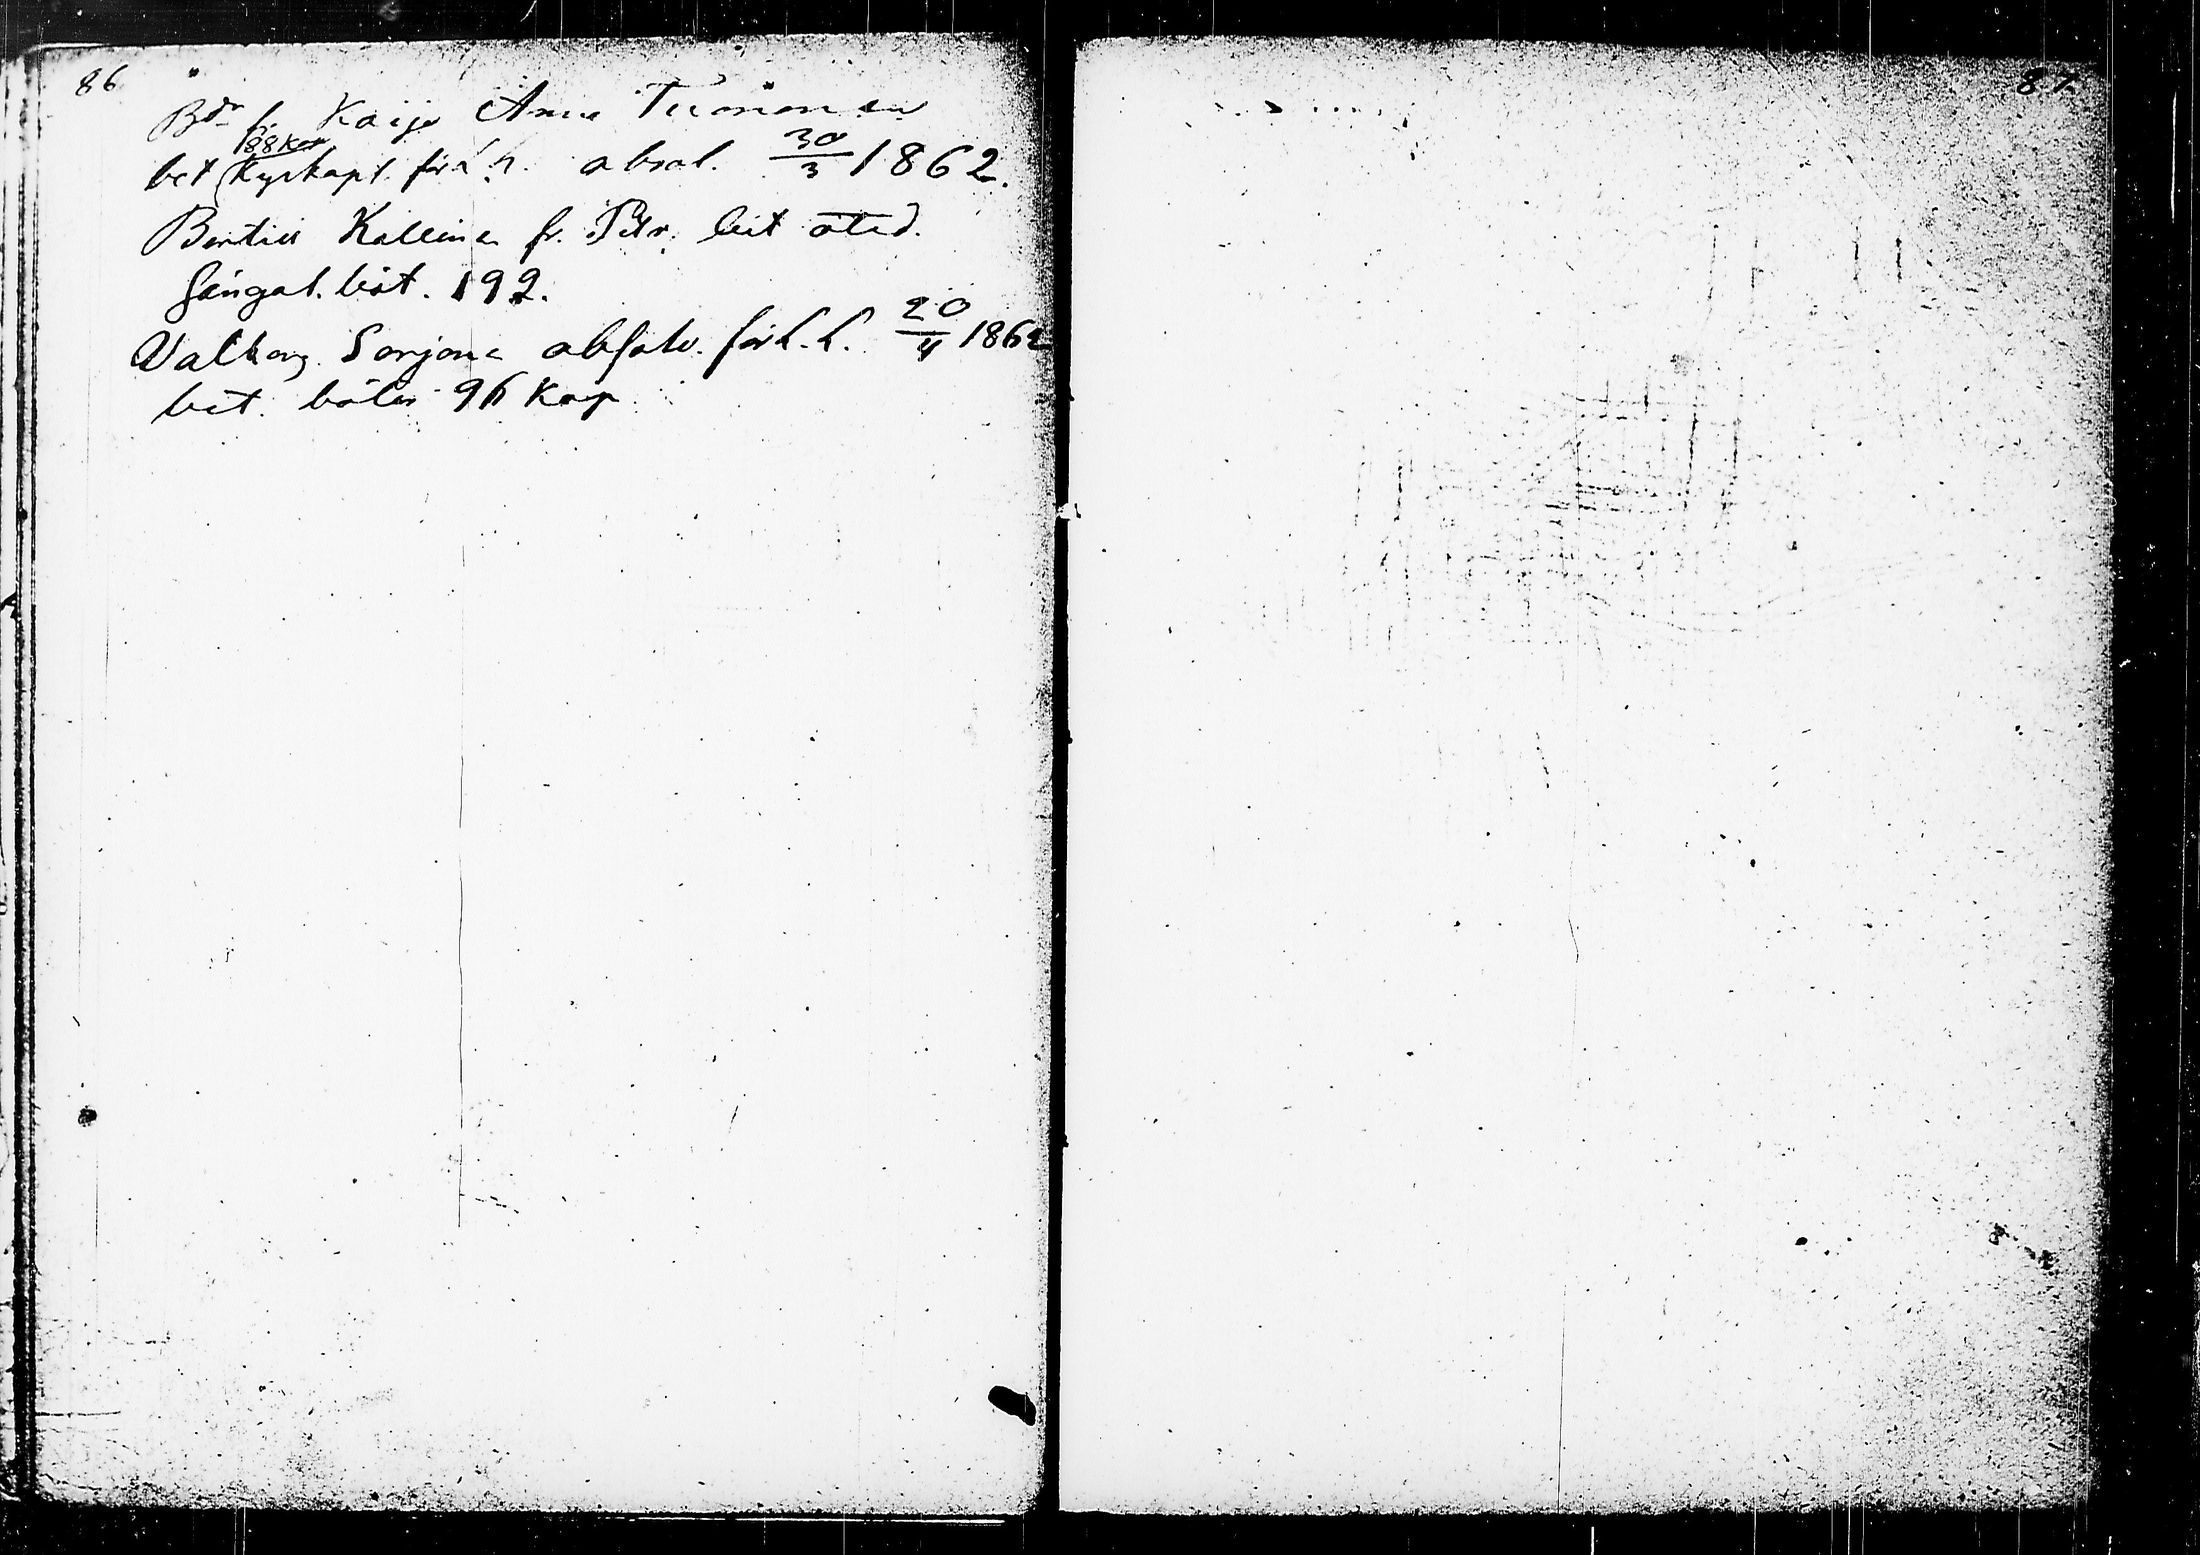 86
Bdr f. Kaijsa Anna Tuononen
88 Kop
bet Kyrkapl. för L.h. absol. 30/3 1862.
Bertill Kallinen fr. Ptr. bet oted.
fångat. böt. 192.
Valborg Sorjonen absolv. för L.L. 20/4 1862
bet. böter 96 Kop
87